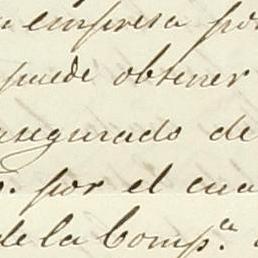 empresa por
puede obtener
asegurado de
por el cua
de la Comp.ª